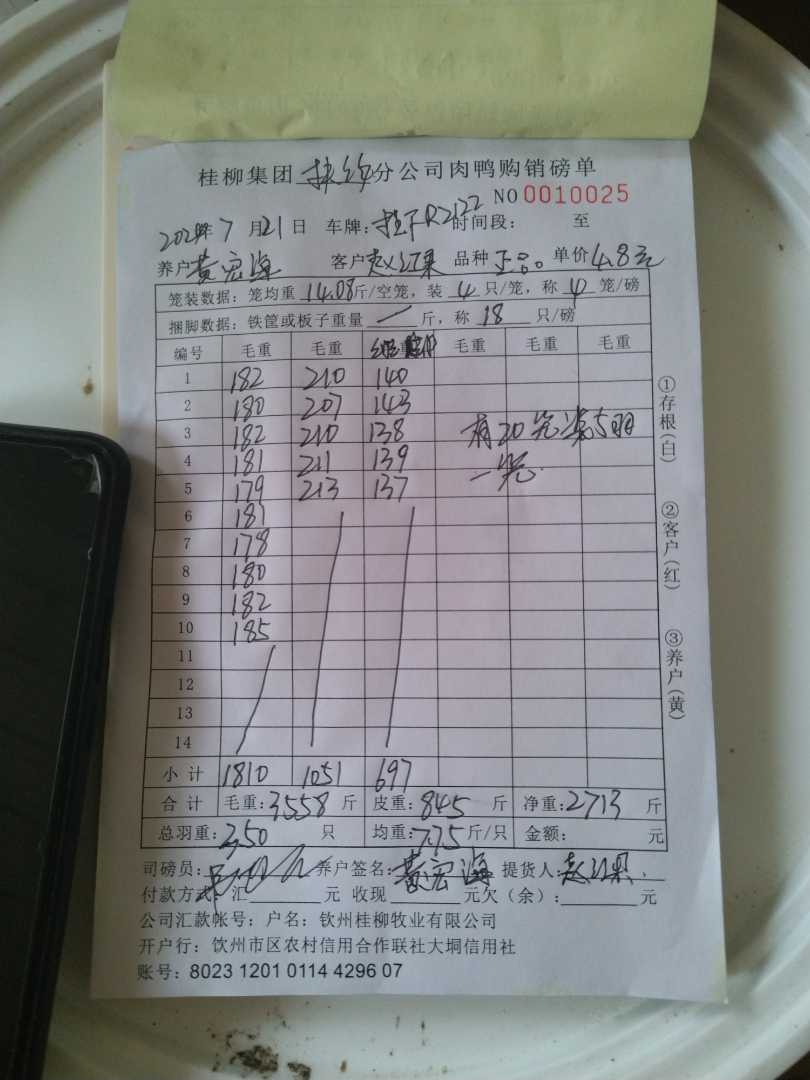 桂柳集团 分公司肉鸭购销磅单
NO 0010025
年7月21日 车牌: R2122 时间段: 至
养户 黄宏海 客户 赵红果 品种 正品。 单价4.8元
笼装数据: 笼均重 14.08斤/空笼, 装 4 只/笼, 称 4 笼/磅
捆脚数据: 铁筐或板子重量 — 斤, 称 18 只/磅
编号 毛重 毛重 毛重 毛重 毛重
1 182 210 140
2 180 207 143
3 182 210 138 有20笼装5羽
4 181 211 139 一笼
5 179 213 137
6 181
7 178
8 180
9 182
10 185
11
12
13
14
小计 1810 1051 697
合计 毛重:3558斤 皮重:845斤 净重:2713斤
总羽重:350只 均重:7.75斤/只 金额: 元
司磅员: 养户签名:黄宏海 提货人:赵红果
付款方式: 汇 元 收现 元欠(余): 元
公司汇款帐号: 户名: 钦州桂柳牧业有限公司
开户行: 饮州市区农村信用合作联社大垌信用社
账号: 8023 1201 0114 4296 07
①存根(白)
②客户(红)
③养户(黄)